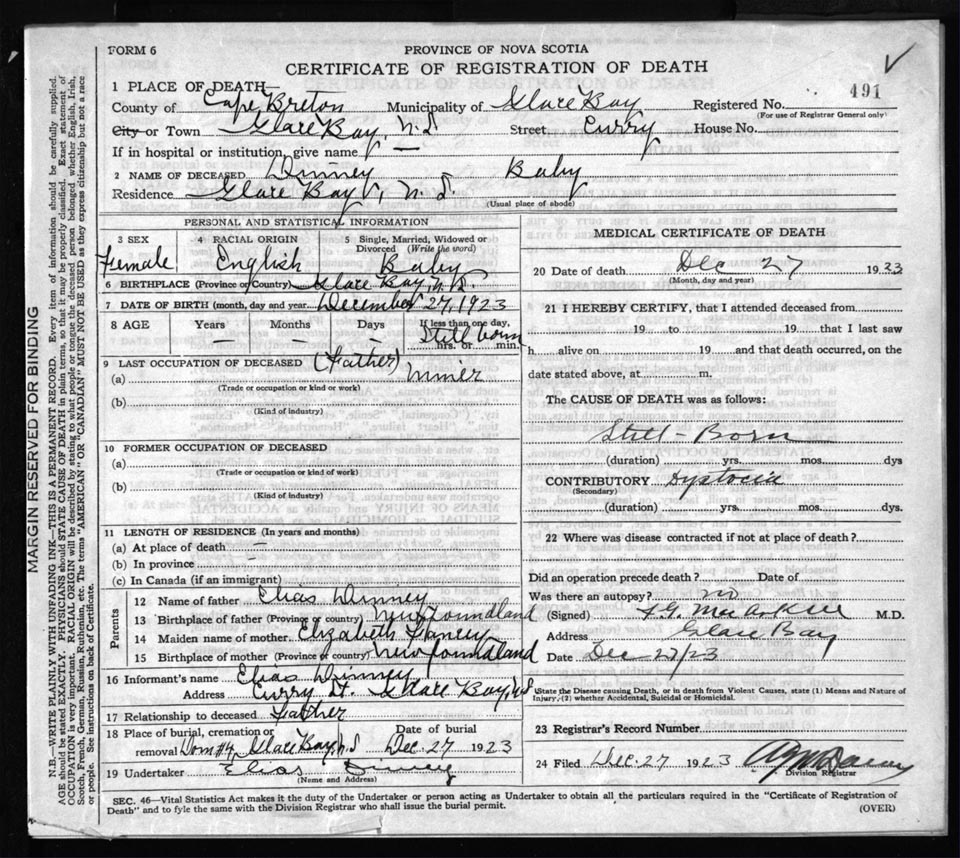 FORM 6
PROVINCE OF NOVA SCOTIA
CERTIFICATE OF REGISTRATION OF DEATH
1 PLACE OF DEATH—
County of Cape Breton Municipality of Glace Bay Registered No. 491
(For use of Registrar General only)
City or Town Glace Bay, N.S. Street, Curry House No.
If in hospital or institution, give name —
2 NAME OF DECEASED Dinney Baby
Residence Glace Bay, N.S.
(Usual place of abode)
PERSONAL AND STATISTICAL INFORMATION
3 SEX 4 RACIAL ORIGIN 5 Single, Married, Widowed or Divorced (Write the word)
Female English Baby
6 BIRTHPLACE (Province or Country) Glace Bay, N.S.
7 DATE OF BIRTH (month, day and year) December 27, 1923
8 AGE Years Months Days If less than one day,
— — — Still born
hrs. or min.
9 LAST OCCUPATION OF DECEASED (Father)
(a) Miner
(Trade or occupation or kind or work)
(b)
(Kind of industry)
10 FORMER OCCUPATION OF DECEASED
(a)
(Trade or occupation or kind of work)
(b)
(Kind of industry)
11 LENGTH OF RESIDENCE (In years and months)
(a) At place of death —
(b) In province —
(c) In Canada (if an immigrant)
Parents
12 Name of father Elias Dinney
13 Birthplace of father (Province or country) Newfoundland
14 Maiden name of mother Elizabeth
15 Birthplace of mother (Province or country) Newfoundland
16 Informant's name Elias Dinney
Address Curry St. Glace Bay, N.S.
17 Relationship to deceased Father
18 Place of burial, cremation or removal Dom #4, Glace Bay N.S Date of burial Dec. 27 1923
19 Undertaker Elias Dinney
(Name and Address)
MEDICAL CERTIFICATE OF DEATH
20 Date of death Dec 27 1923
(Month, day and year)
21 I HEREBY CERTIFY, that I attended deceased from
19 to 19 that I last saw
h alive on 19 and that death occurred, on the
date stated above, at m.
The CAUSE OF DEATH was as follows:
Still-Born
(duration) yrs. mos. dys
CONTRIBUTORY Dystocia
(Secondary)
(duration) yrs. mos. dys.
22 Where was disease contracted if not at place of death?
Did an operation precede death? Date of
Was there an autopsy? no
(Signed) M.D.
Address Glace Bay
Date Dec 27/23
State the Disease causing Death, or in death from Violent Causes, state (1) Means and Nature of
Injury, (2) whether Accidental, Suicidal or Homicidal.
23 Registrar's Record Number
24 Filed Dec. 27 1923
Division Registrar
SEC. 46—Vital Statistics Act makes it the duty of the Undertaker or person acting as Undertaker to obtain all the particulars required in the "Certificate of Registration of
Death" and to fyle the same with the Division Registrar who shall issue the burial permit.
(OVER)
MARGIN RESERVED FOR BINDING
N.B.—WRITE PLAINLY WITH UNFADING INK—THIS IS A PERMANENT RECORD. Every item of information should be carefully supplied.
AGE should be stated EXACTLY. PHYSICIANS should STATE CAUSE OF DEATH in plain terms, so that it may be properly classified. Exact statement of
OCCUPATION is very important. RACIAL ORIGIN will be described by stating to what people or tongue the deceased person belonged, whether English, Irish,
Scotch, French, German, Russian, Ruthenian, etc. The terms "AMERICAN" OR "CANADIAN" MUST NOT BE USED as they express citizenship but not a race
or people. See instructions on back of Certificate.